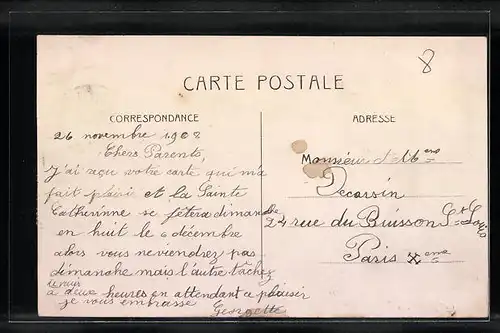 8
CARTE POSTALE
CORRESPONDANCE
ADRESSE
26 novembre 1902
Chers Parents,
J'ai reçu votre carte qui m'a
fait plaisir et la Sainte
Catherinne se fétera dimanche
en huit le 6 décembre
alors vous ne viendrez pas
dimanche mais l'autre tachez
de venir
a deux heures en attendant ce plaisir
je vous embrasse
Georgette
Monsieur et Mme
Decorsin
24 rue du Buisson St Louis
Paris Xeme